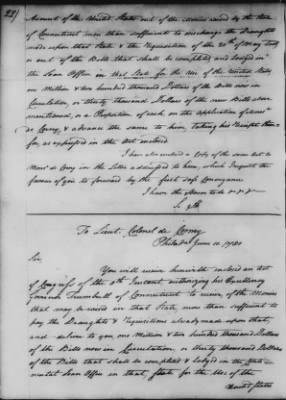 221
Account of the United States out of the Monies raised by the State
of Connecticut more than sufficient to discharge the Draughts
made upon that State & the Requisition of the 20th of May last,
or out of the Bills that shall be completed and lodged in
the Loan Office in that State for the Use of the United States,
one Million & two hundred thousand Dollars of the Bills now in
Circulation, or thirty thousand Dollars of the new Bills above
mentioned, or a Proportion of each on the application of
de Corny, & advance the same to him, taking his Receipt there
for, as expressed in the Act enclosed
I have also enclosed a Copy of the same Act to
Monsr de Corny in the Letter addressed to him, which I request the
favour of you to forward by the first safe Conveyance
I have the Honor to be &c &c &c
S. H.
To Lieut. Colonel de Corny
Philada June 10. 1780
Sir,
You will receive herewith enclosed an Act
of Congress of the 9th Instant authorizing his Excellency
Governor Trumbull of Connecticut to receive of the Monies
that may be raised in that State, more than sufficient to
pay the Draughts & Requisitions already made upon that,
and deliver to you one Million & two hundred thousand Dollars
of the Bills now in Circulation, or thirty thousand Dollars
of the Bills that shall be completed & lodged in the
Loan Office in that State for the Use of the
United States